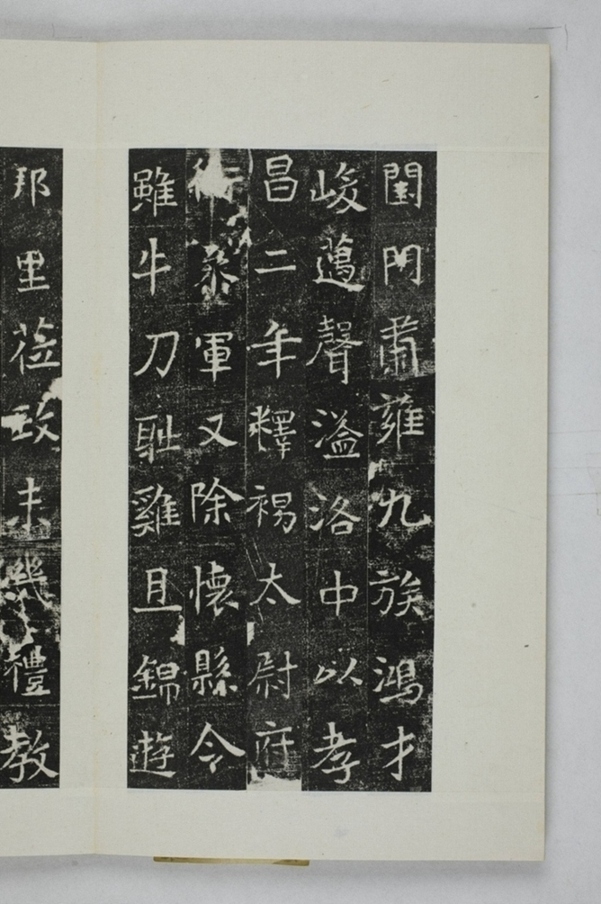 閨門肅雍九族鴻才
峻邁聲溢洛中以孝
昌二年釋褐太尉府
行叅軍又除懷縣令
雖牛刀耻雞且錦遊
邦里莅政未幾禮教